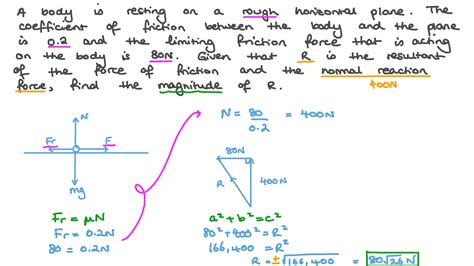 A body is resting on a rough horizontal plane. The
coefficient of friction between the body and the plane
is 0.2 and the limiting friction force that is acting
on the body is 80N. Given that R is the resultant
of the force of friction and the normal reaction
force, find the magnitude of R.
400N
N
Fr
F
mg
Fr = μN
Fr = 0.2N
80 = 0.2N
N = 80/0.2 = 400N
80N
R
400N
a² + b² = c²
80² + 400² = R²
166,400 = R²
R = ±√166,400 = 80√26 N